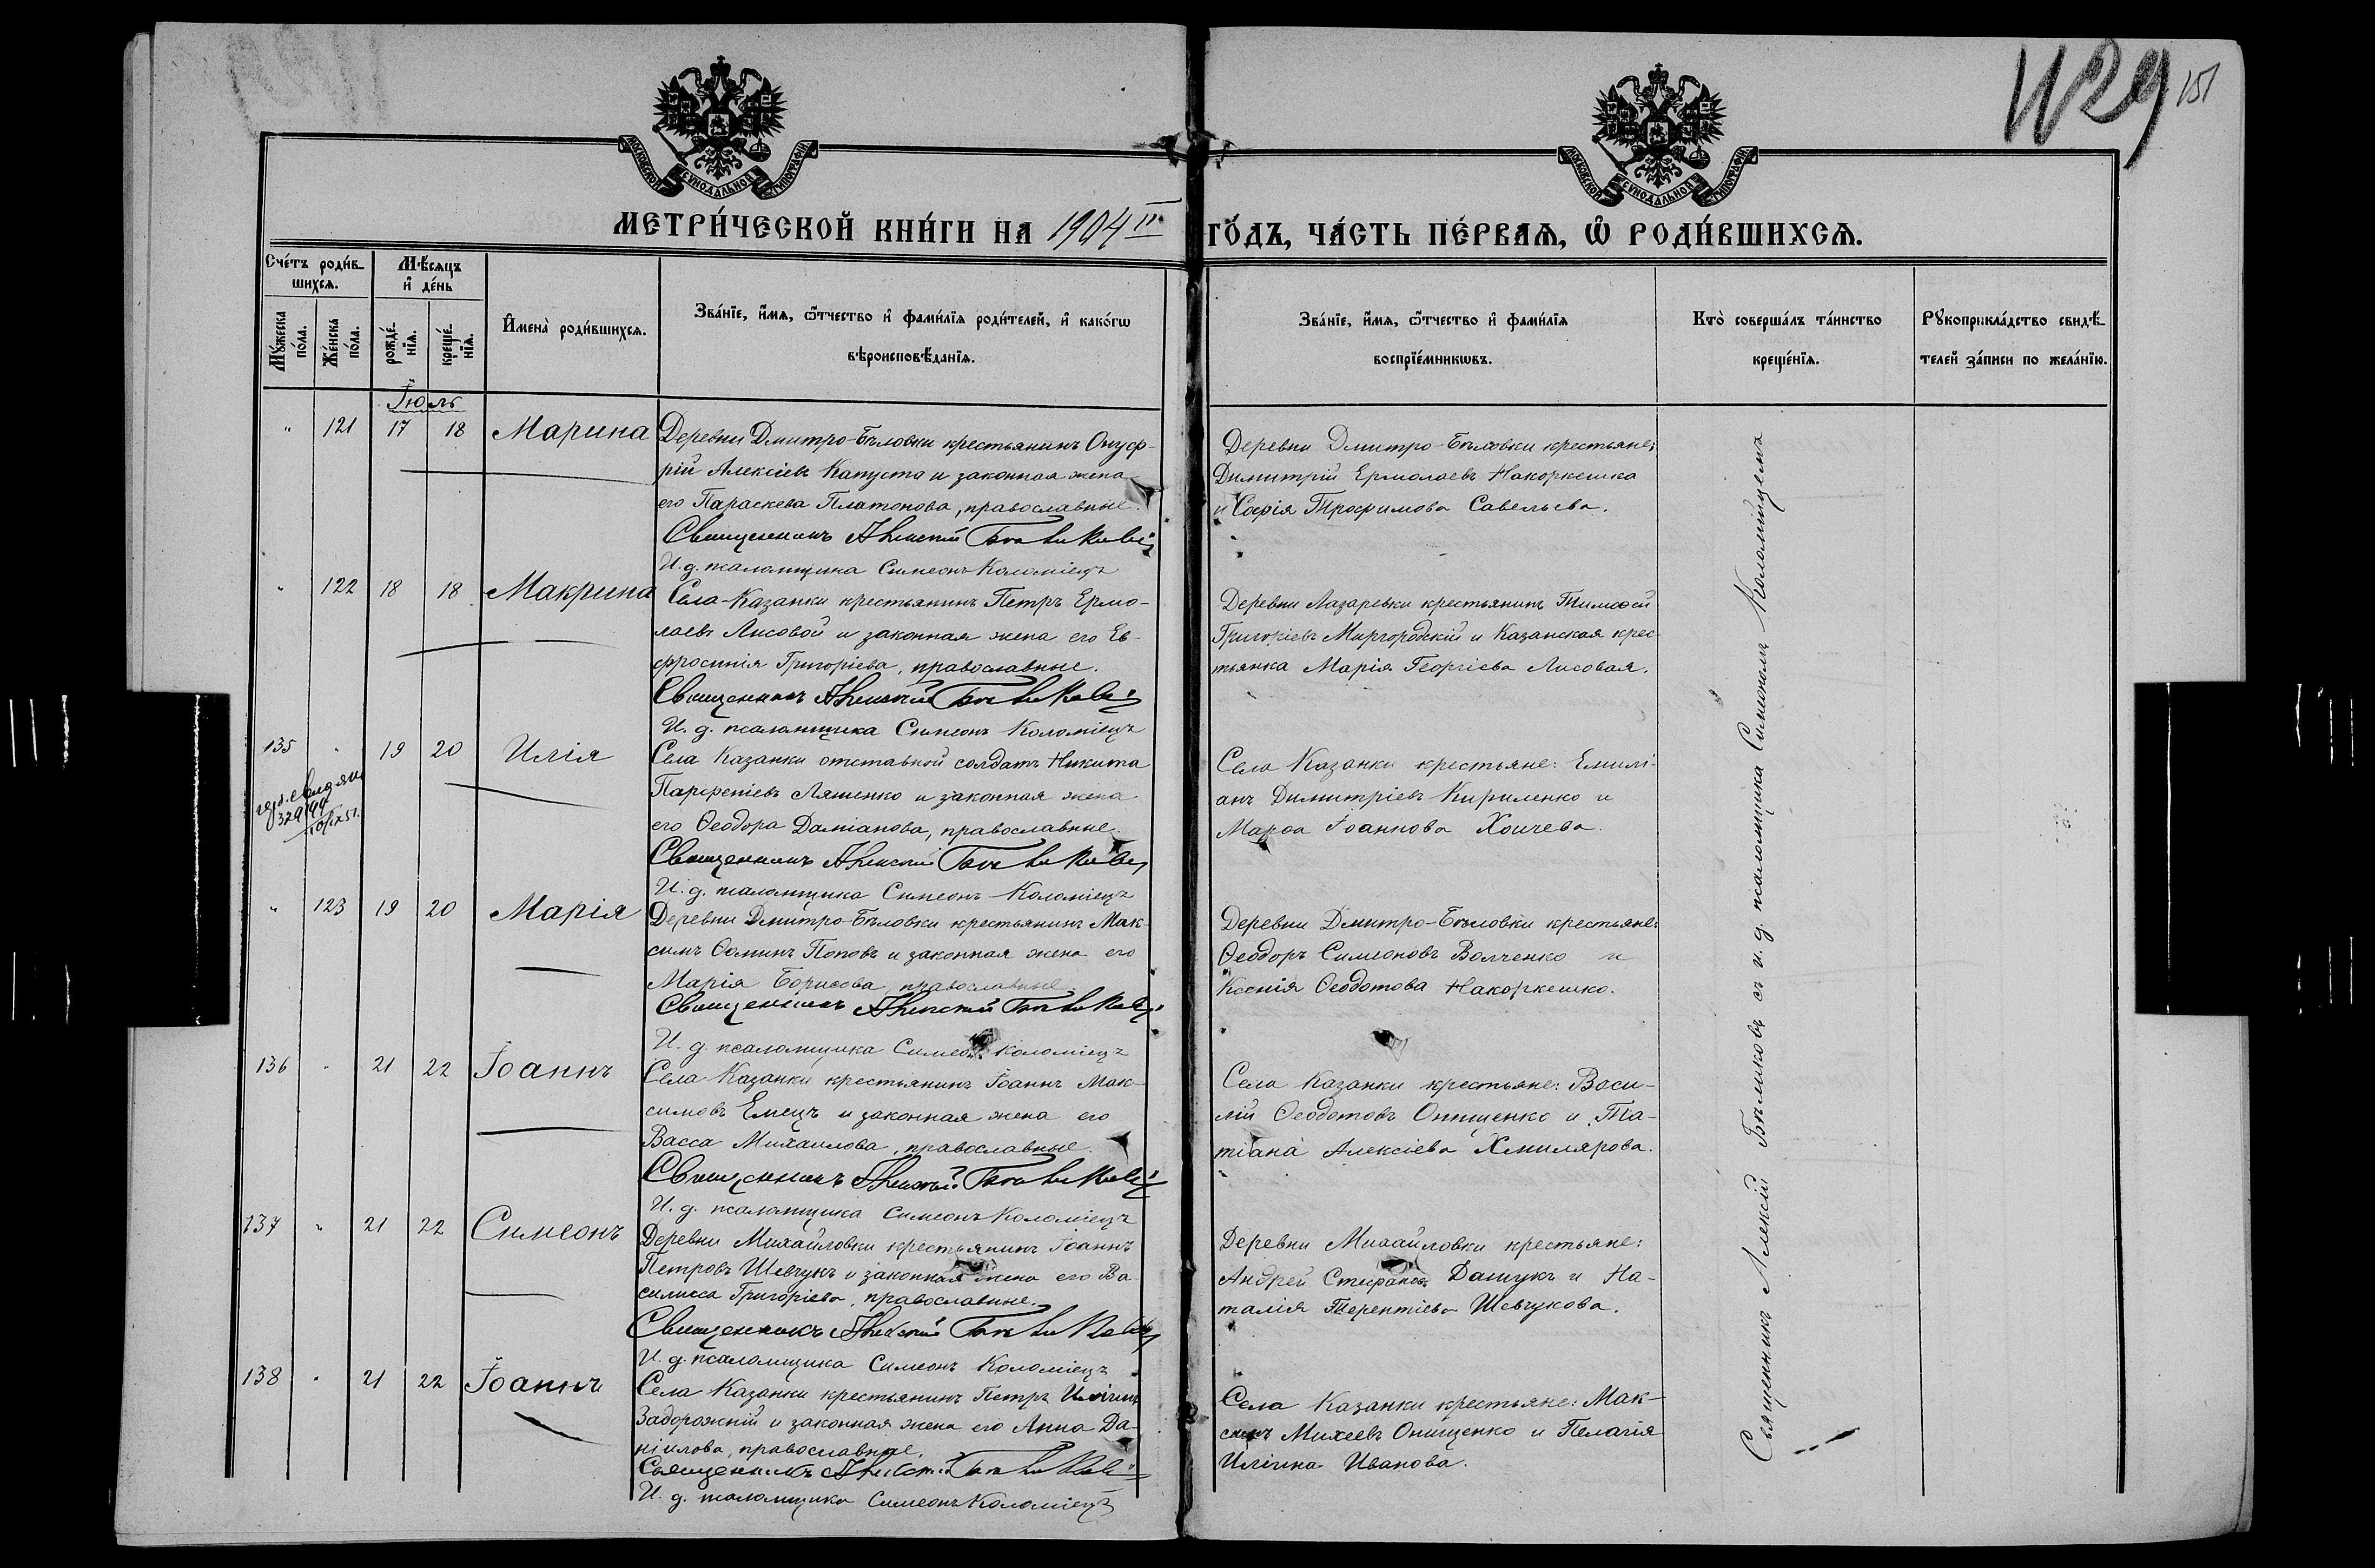 1129
151
МОСКОВСКОЙ СѴНОДАЛЬНОЙ ТИПОГРАФІИ
МОСКОВСКОЙ СѴНОДАЛЬНОЙ ТИПОГРАФІИ
МЕТРИ́ЧЕСКОЙ КНИ́ГИ НА 1904 II ГО́ДЪ, ЧА́СТЬ ПЕ́РВАѦ, Ѽ РОДИ́ВШИХСѦ.
Сче́тъ роди́в-
шихсѧ.
Мѣ́сѧцъ
и҆ де́нь
Мꙋ́жеска
по́ла.
Же́нска
по́ла.
рожде́-
нїѧ.
креще́-
нїѧ.
И҆мена̀ роди́вшихсѧ.
Зва́нїе, и҆́мѧ, ѻ҆́тчество и҆ фами́лїѧ роди́телей, и҆ како́гѡ
вѣроисповѣ́данїѧ.
Зва́нїе, и҆́мѧ, ѻ҆́тчество и҆ фами́лїѧ
воспрїе́мникѡвъ.
Кто̀ соверша́лъ та́инство
креще́нїѧ.
Рꙋкоприкла́дство свидѣ́-
телей за́писи по жела́нїю.
Іюль
" 121 17 18 Марина
Деревни Дмитро-Бѣловки крестьянинъ Онуф-
рій Алексіевъ Капуста и законная жена
его Параскева Платонова, православные.
Священникъ Алексій Бѣликовъ
И. д. псаломщика Симеонъ Коломіецъ
Деревни Дмитро-Бѣловки крестьяне:
Димитрій Ермолаевъ Накоркешка
и Софія Трофимова Савельева.
" 122 18 18 Макрина
Села Казанки крестьянинъ Петръ Ермо-
лаевъ Лисовой и законная жена его Ев-
фросинія Григоріева, православные.
Священникъ Алексій Бѣликовъ
И. д. псаломщика Симеонъ Коломіецъ
Деревни Лазаревки крестьянинъ Тимофей
Григоріевъ Миргородскій и Казанская крес-
тьянка Марія Георгіева Лисовая.
135 " 19 20 Илія
Села Казанки отставной солдатъ Никита
Парфеніевъ Ляшенко и законная жена
его Ѳеодора Даміанова, православные.
Священникъ Алексій Бѣликовъ
И. д. псаломщика Симеонъ Коломіецъ
Села Казанки крестьяне: Емилі-
анъ Димитріевъ Кириленко и
Марѳа Іоаннова Хоичева.
" 123 19 20 Марія
Деревни Дмитро-Бѣловки крестьянинъ Мак-
симъ Ѳоминъ Поповъ и законная жена его
Марія Борисова, православные.
Священникъ Алексій Бѣликовъ
И. д. псаломщика Симеонъ Коломіецъ
Деревни Дмитро-Бѣловки крестьяне:
Ѳеодоръ Симеоновъ Волченко и
Ксенія Ѳеодотова Накоркешко.
136 " 21 22 Іоаннъ
Села Казанки крестьянинъ Іоаннъ Мак-
симовъ Емецъ и законная жена его
Васса Михаилова, православные.
Священникъ Алексій Бѣликовъ
И. д. псаломщика Симеонъ Коломіецъ
Села Казанки крестьяне: Васи-
лій Ѳеодотовъ Онищенко и Та-
тіана Алексіева Хмилярова.
137 " 21 22 Симеонъ
Деревни Михайловки крестьянинъ Іоаннъ
Петровъ Шевчукъ и законная жена его Ва-
силисса Григоріева, православные.
Священникъ Алексій Бѣликовъ
И. д. псаломщика Симеонъ Коломіецъ
Деревни Михайловки крестьяне:
Андрей Стефановъ Дашукъ и На-
талія Терентіева Шевчукова.
138 " 21 22 Іоаннъ
Села Казанки крестьянинъ Петръ Иліинъ
Задорожній и законная жена его Анна Да-
ніилова, православные.
Священникъ Алексій Бѣликовъ
И. д. псаломщика Симеонъ Коломіецъ
Села Казанки крестьяне: Мак-
симъ Михеевъ Онищенко и Пелагія
Иліина Иванова.
Священникъ Алексій Бѣликовъ съ и. д. псаломщика Симеономъ Коломійцемъ